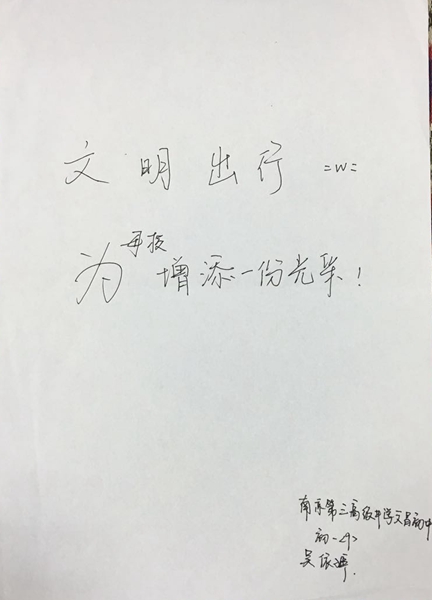 文明出行 =w=
为母校增添一份光荣!
南京第三高级中学文昌初中
初一<9>
吴依